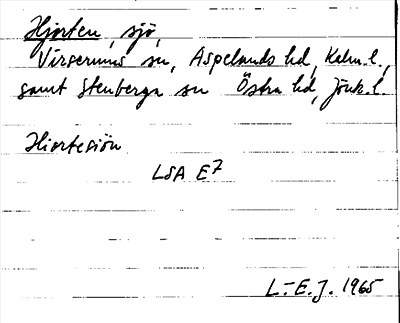 Hjorten, sjö,
Virserums sn, Aspelands hd, Kalm. l.,
samt Stenberga sn Östra hd, Jönk. l.
Hjortesjön
LSA E7
L.-E. J. 1965